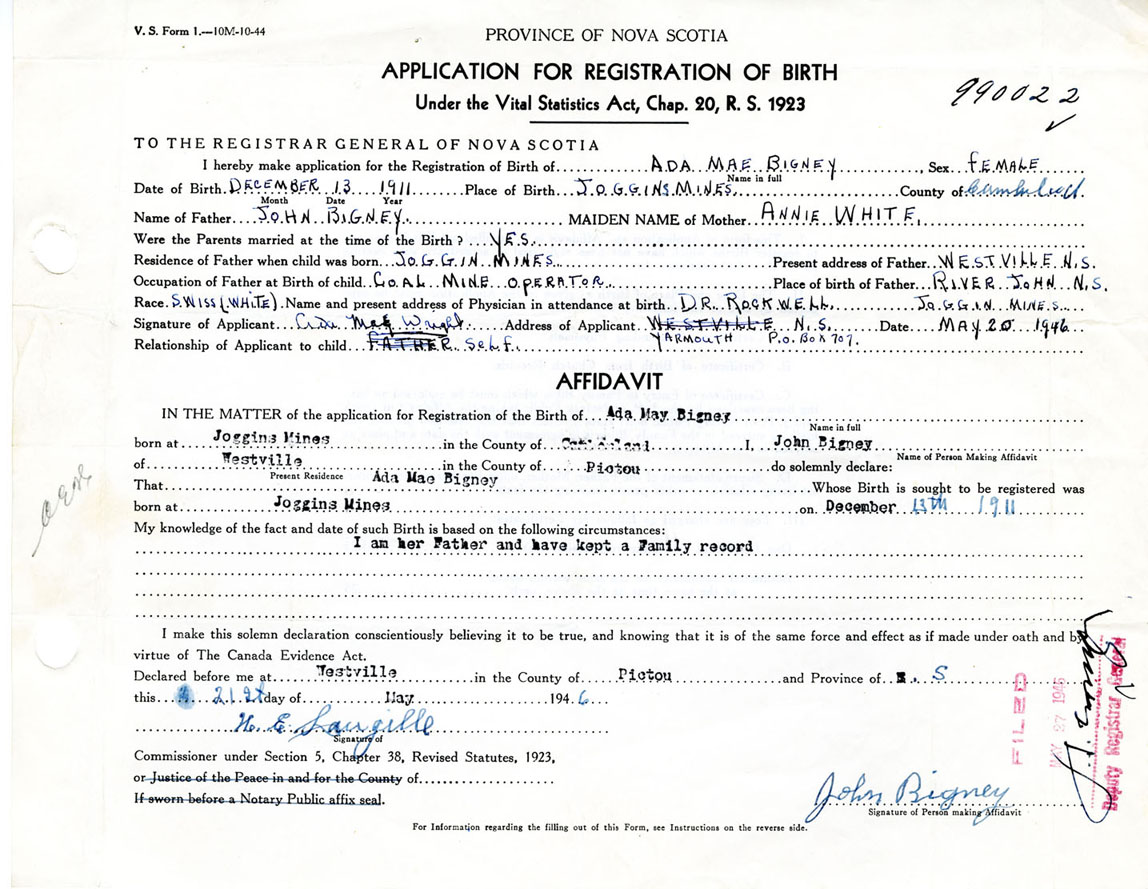 V. S. Form 1.—10M-10-44
PROVINCE OF NOVA SCOTIA
APPLICATION FOR REGISTRATION OF BIRTH
Under the Vital Statistics Act, Chap. 20, R. S. 1923
990022
TO THE REGISTRAR GENERAL OF NOVA SCOTIA
I hereby make application for the Registration of Birth of ADA MAE BIGNEY, Sex FEMALE
Name in full
Date of Birth DECEMBER 13 1911 Place of Birth JOGGINS MINES. County of Cumberland.
Month Date Year
Name of Father JOHN BIGNEY. MAIDEN NAME of Mother ANNIE WHITE.
Were the Parents married at the time of the Birth? YES.
Residence of Father when child was born JOGGIN MINES Present address of Father WESTVILLE N.S.
Occupation of Father at Birth of child COAL MINE OPERATOR. Place of birth of Father RIVER JOHN N.S.
Race SWISS (WHITE). Name and present address of Physician in attendance at birth DR. ROCKWELL. JOGGIN MINES.
Signature of Applicant Ada Mae Wright. Address of Applicant WESTVILLE N.S. Date MAY 20 1946
Relationship of Applicant to child FATHER Self. YARMOUTH P.O. Box 707.
AFFIDAVIT
IN THE MATTER of the application for Registration of the Birth of Ada May Bigney
Name in full
born at Joggins Mines in the County of Cumberland I, John Bigney
Name of Person Making Affidavit
of Westville in the County of Pictou do solemnly declare:
Present Residence
That Ada Mae Bigney Whose Birth is sought to be registered was
born at Joggins Mines on December 13th 1911
My knowledge of the fact and date of such Birth is based on the following circumstances:
I am her Father and have kept a Family record
I make this solemn declaration conscientiously believing it to be true, and knowing that it is of the same force and effect as if made under oath and by
virtue of The Canada Evidence Act.
Declared before me at Westville in the County of Pictou and Province of N. S
this 21st day of May 1946
H. E. Langille
Signature of
Commissioner under Section 5, Chapter 38, Revised Statutes, 1923,
or Justice of the Peace in and for the County of
If sworn before a Notary Public affix seal.
John Bigney
Signature of Person making Affidavit
For Information regarding the filling out of this Form, see Instructions on the reverse side.
FILED
MAY 27 1946
Deputy Registrar General